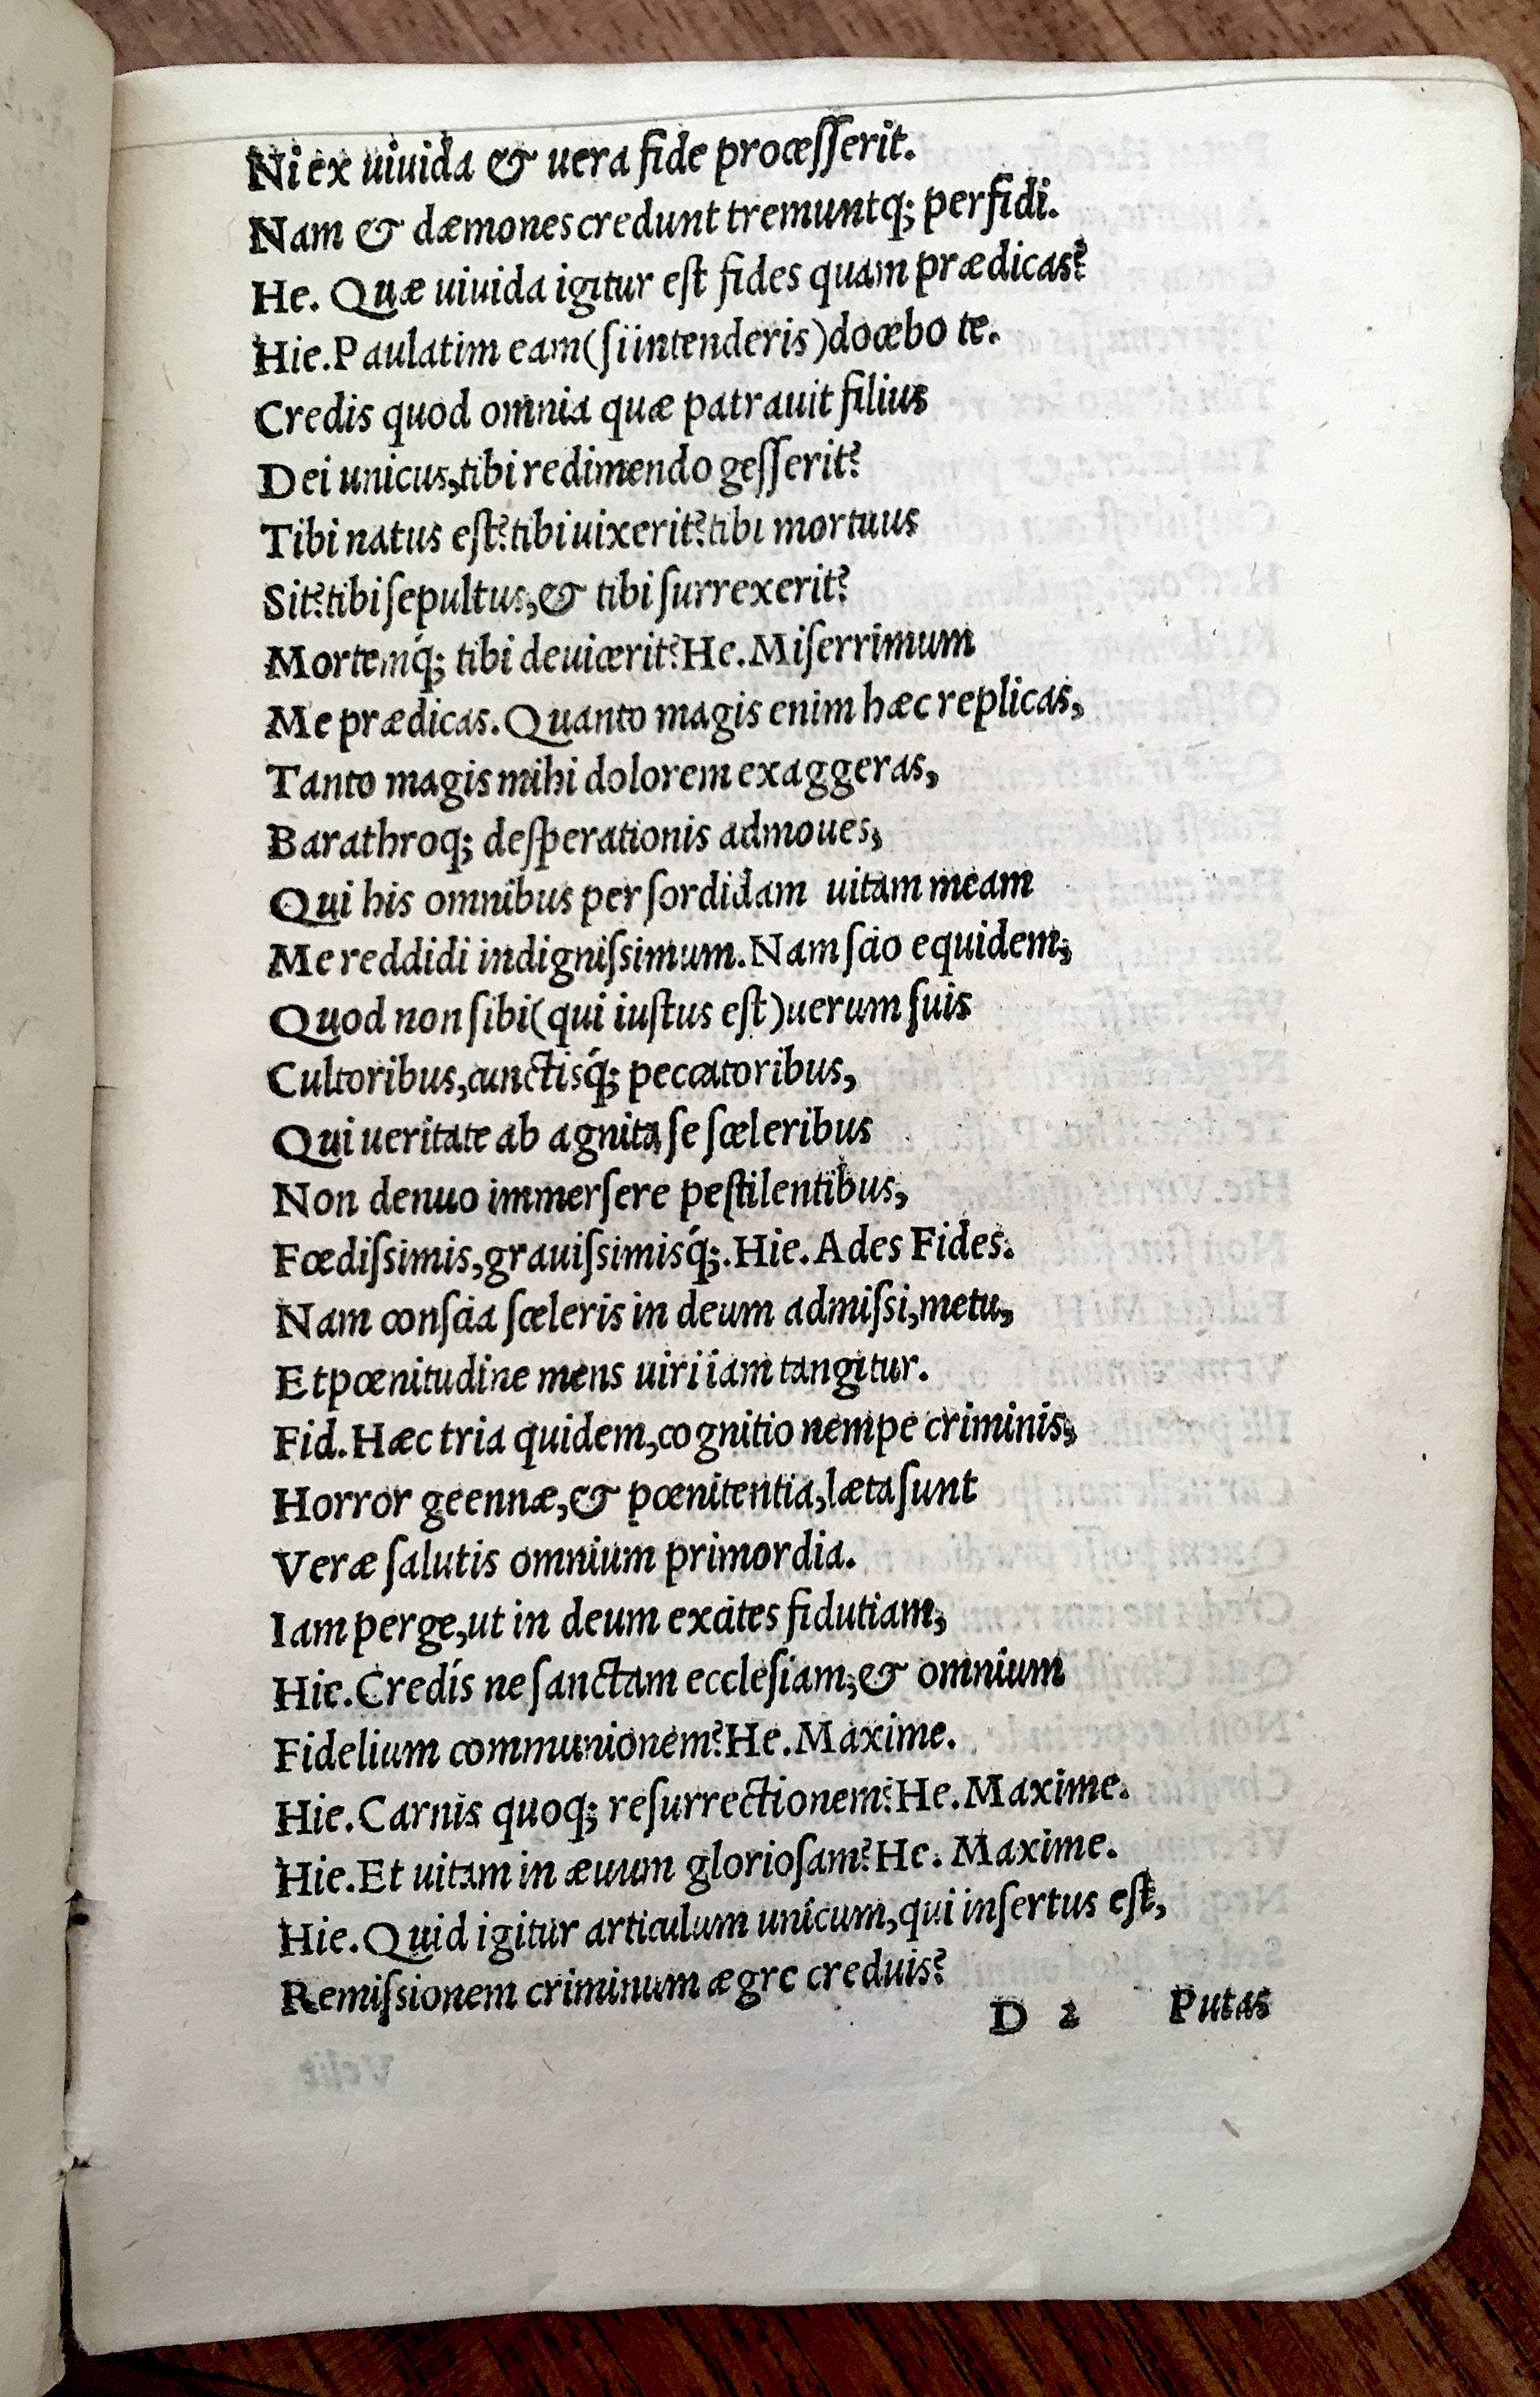 Ni ex uiuida & uera fide proceſſerit.
Nam & dæmones credunt tremuntq́; perfidi.
He. Quæ uiuida igitur eſt fides quam prædicas?
Hie. Paulatim eam (ſi intenderis) docebo te.
Credis quod omnia quæ patrauit filius
Dei unicus, tibi redimendo geſſerit?
Tibi natus eſt? tibi uixerit? tibi mortuus
Sit? tibi ſepultus, & tibi ſurrexerit?
Mortemq́; tibi deuicerit? He. Miſerrimum
Me prædicas. Quanto magis enim hæc replicas,
Tanto magis mihi dolorem exaggeras,
Barathroq; deſperationis admoues,
Qui his omnibus per ſordidam uitam meam
Me reddidi indigniſsimum. Nam ſcio equidem,
Quod non ſibi (qui iuſtus eſt) uerum ſuis
Cultoribus, cunctisq́; peccatoribus,
Qui ueritate ab agnita ſe ſceleribus
Non denuo immerſere peſtilentibus,
Fœdiſsimis, grauiſsimisq́;. Hie. Ades Fides.
Nam conſcia ſceleris in deum admiſsi, metu,
Et pœnitudine mens uiri iam tangitur.
Fid. Hæc tria quidem, cognitio nempe criminis,
Horror geennæ, & pœnitentia, læta ſunt
Veræ ſalutis omnium primordia.
Iam perge, ut in deum excites fidutiam,
Hie. Credís ne ſanctam eccleſiam, & omnium
Fidelium communionem? He. Maxime.
Hie. Carnis quoq; reſurrectionem? He. Maxime.
Hie. Et uitam in æuum glorioſam? He. Maxime.
Hie. Quid igitur articulum unicum, qui inſertus eſt,
Remiſsionem criminum ægre creduis?
D 2 Putas